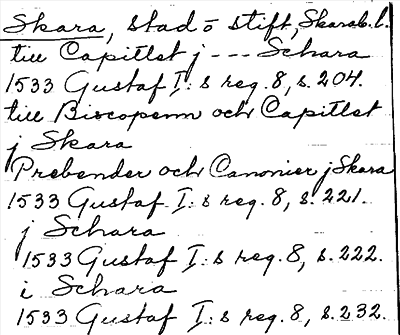 Skara, stad o stift, Skarab. l.
till Capitlet j --- Schara
1533 Gustaf I:s reg. 8, s. 204.
till Biscopenn och Capitlet
j Skara
Prebender och Canonier j Skara
1533 Gustaf I:s reg. 8, s. 221.
j Schara
1533 Gustaf I:s reg. 8, s. 222.
i Schara
1533 Gustaf I:s reg. 8, s. 232.